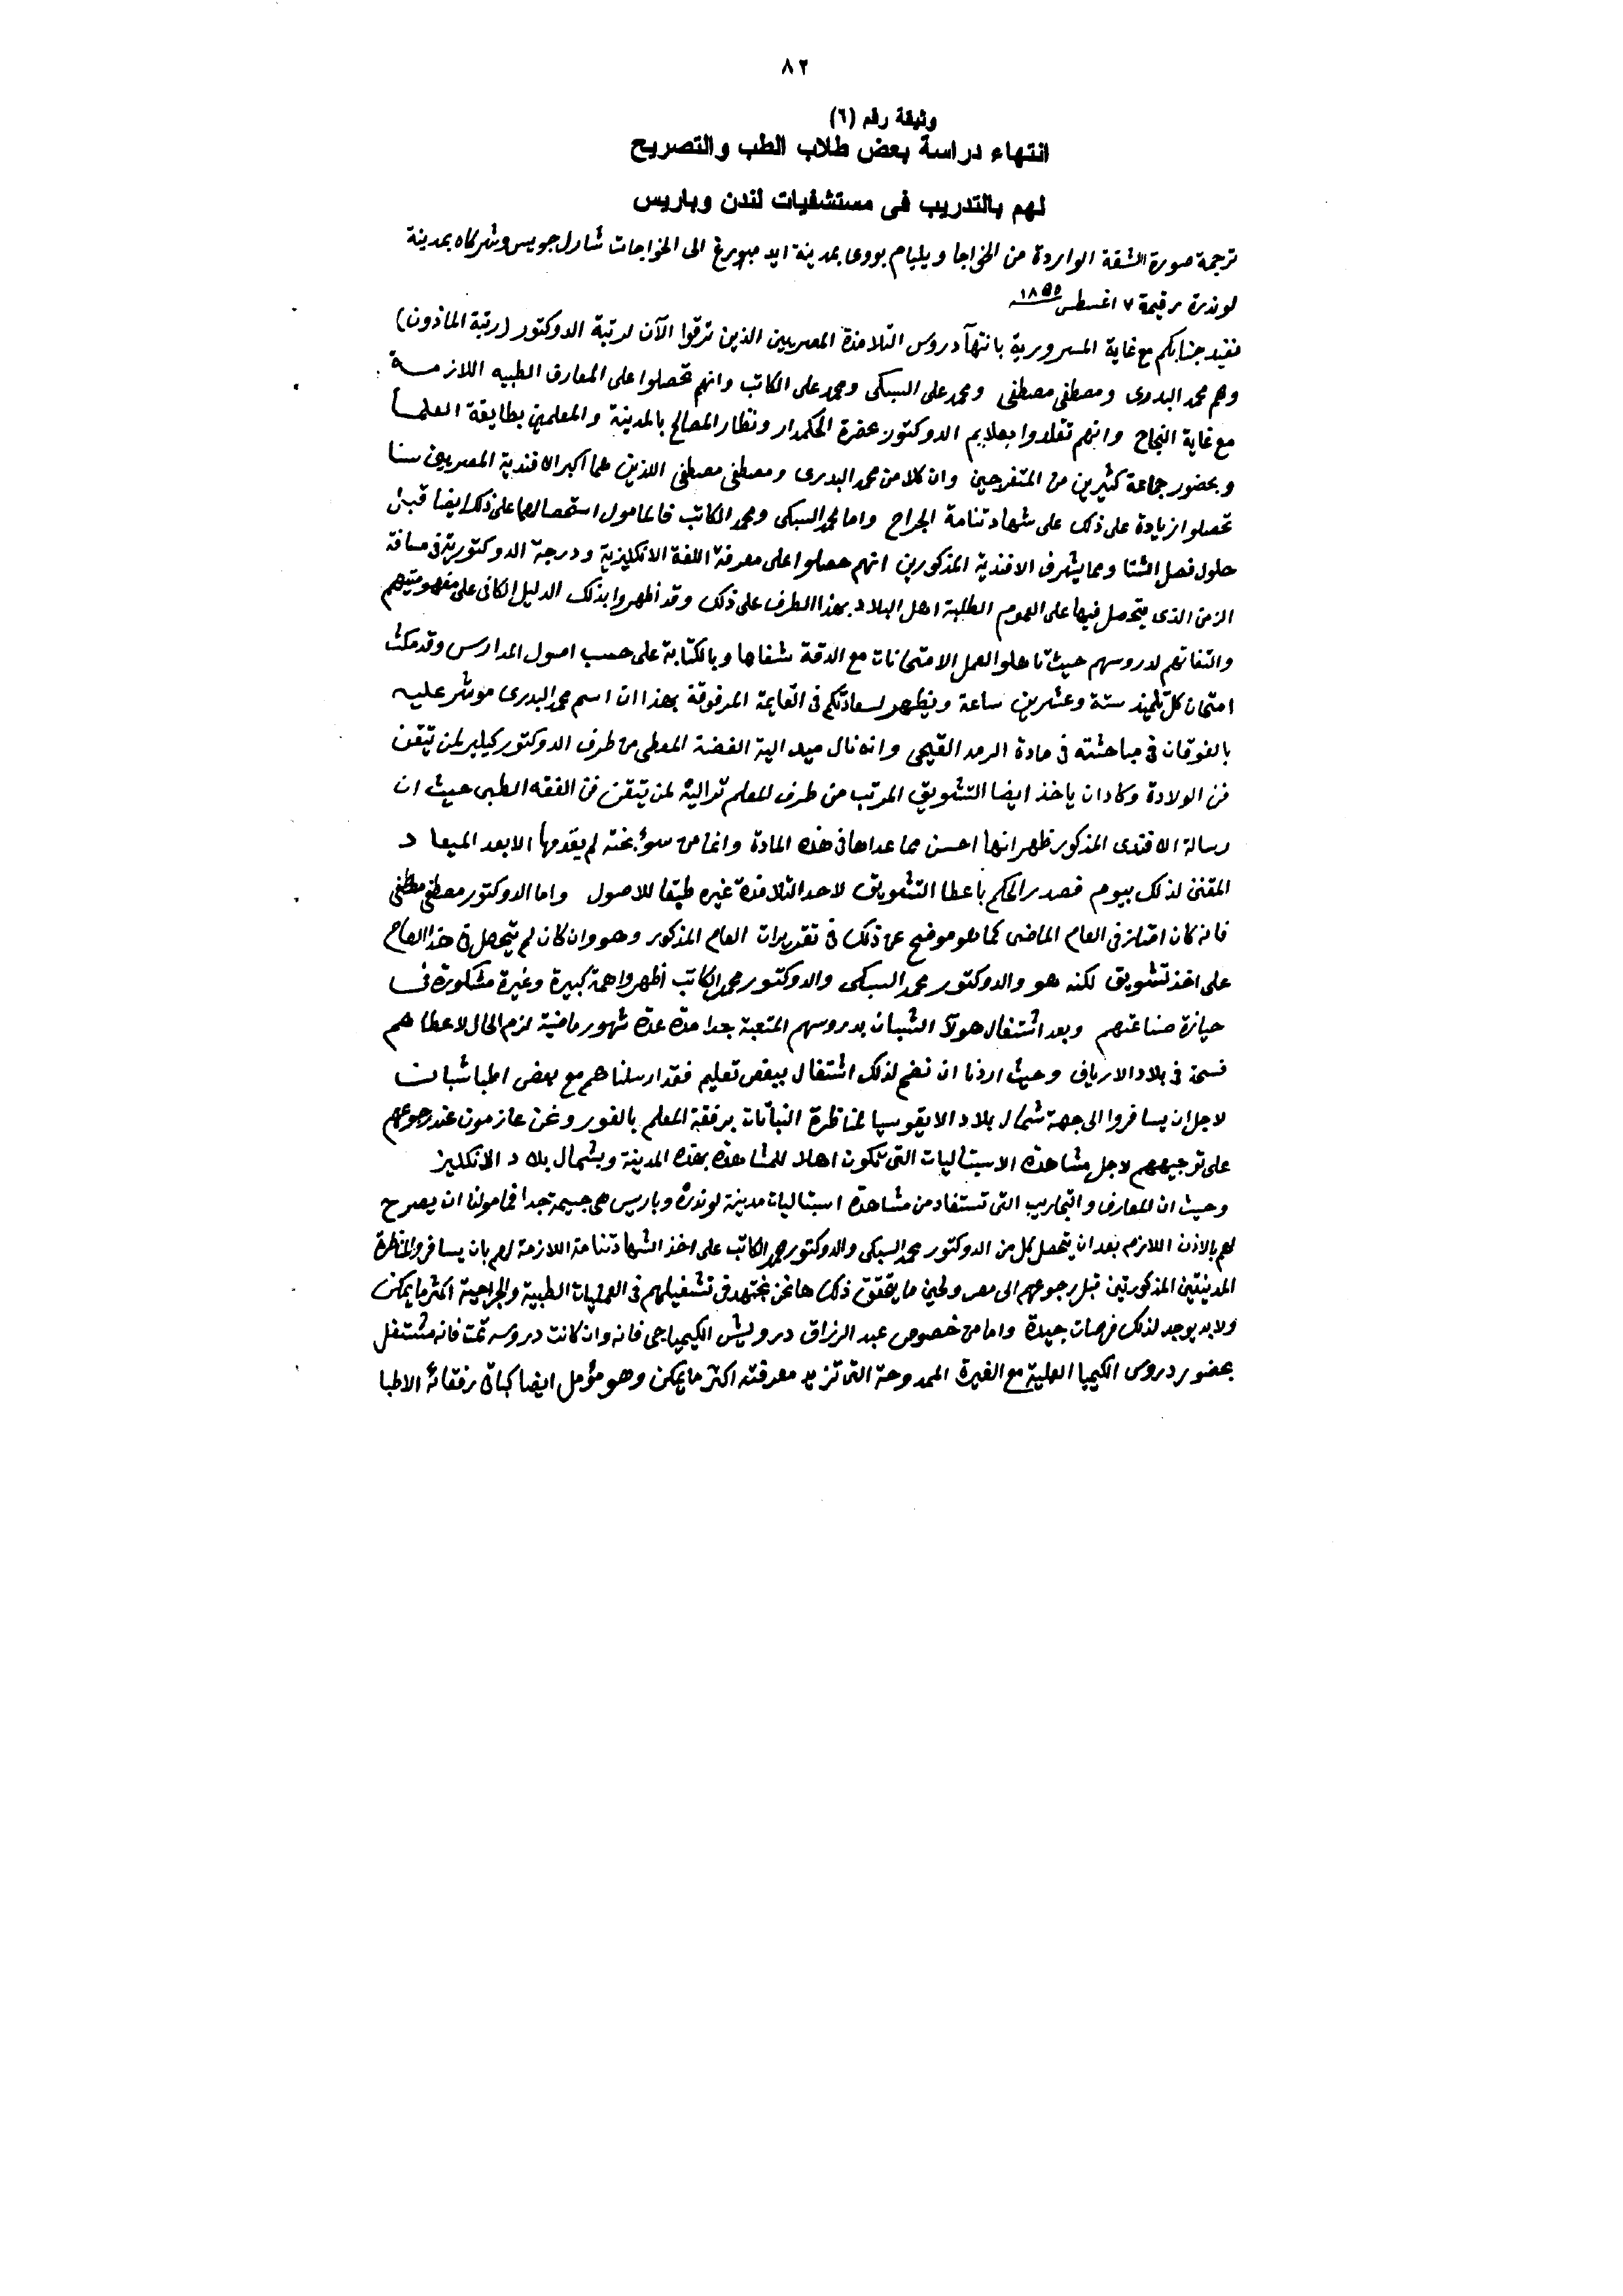 ٨٢
وثيقة رقم (٦)
انتهاء دراسة بعض طلاب الطب والتصريح
لهم بالتدريب فى مستشفيات لندن وباريس
ترجمة صورة الشقة الواردة من الخواجا ويليام بووى بمدينة ايد مبورغ الى الخواجات شارل جويس وشركاه بمدينة
لوندرة رقيمة ٧ اغسطس ١٨٥٥
نفيد جنابكم مع غاية المسرورية بانتهآ دروس التلامذة المصريين الذين ترقوا الآن لرتبة الدوكتور (رتبة الماذون)
وهم محمد البدرى ومصطفى مصطفى ومحمد على السبكى ومحمد على الكاتب وانهم تحصلوا على المعارف الطبيه اللازمــة
مع غاية النجاح وانهم تقلدوا بعلايم الدوكتور بحضرة الحكمدار ونظار المصالح بالمدينة والمعلمين بطايقة العلمــا
وبحضور جماعة كثيرين من المتفرجين وان كلا من محمد البدرى ومصطفى مصطفى اللذين هما اكبر الافندية المصريين سنا
تحصلوا زيادة على ذلك على شهادتنامة الجراح واما محمد السبكى ومحمد الكاتب فالمامول استحصالهما على ذلك ايضا قبل
حلول فصل الشتا ومما يشرف الافندية المذكورين انهم حصلوا على معرفة اللغة الانكليزية ودرجة الدوكتورية فى مسافة
الزمن الذى يتحصل فيها على العموم الطلبة اهل البلاد بهذا الطرف على ذلك وقد اظهروا بذلك الدليل الكافى على مفهوميتهم
والتفاتهم لدروسهم حيث تاهلوا لعمل الامتحانات مع الدقة شفاها وبالكتابة على حسب اصول المدارس وقد مكث
امتحان كل تلميذ ستة وعشرين ساعة ويظهر لسعادتكم فى القايمة المرفوقة بهذا ان اسم محمد البدرى موشر عليه
بالفوقان فى مباحثته فى مادة الرمد القيحى وانه نال ميدالية الفضة المعطى من طرف الدوكتور كيلير لمن يتقن
فن الولادة وكاد ان ياخذ ايضا التشويق المرتب من طرف المعلم ترالية لمن يتقن فن الفقه الطبى حيث ان
رسالة الافندى المذكور ظهر انها احسن مما عداها فى هذه المادة وانما من سوء بخته لم يقدمها الا بعد الميعاد
المقنن لذلك بيوم فصدر الحكم باعطا التشويق لاحد التلامذة غيره طبقا للاصول واما الدوكتور مصطفى مصطفى
فانه كان امتاز فى العام الماضى كما هو موضح عن ذلك فى تقريرات العام المذكور وهو وان كان لم يتحصل فى هذا العام
على اخذ تشويق لكنه هو والدوكتور محمد السبكى والدوكتور محمد الكاتب اظهروا همة كبيرة وغيرة مشكورة فى
حيازة صناعتهم وبعد اشتغال هولآ الشبان بدروسهم المتعبة جدا مدة عدة شهور ماضية لزم الحال لاعطاهم
فسحة فى بلاد الارياف وحيث اردنا ان نضم لذلك اشتغال ببعض تعليم فقد ارسلناهم مع بعض اطبا شبان
لاجل ان يسافروا الى جهة شمال بلاد الايقوسيا لمناظرة النباتات برفقة المعلم بالفور ونحن عازمون عند رجوعهم
على توجيههم لاجل مشاهدة الاسبتاليات التى تكون اهلا للمشاهدة بهذه المدينة وبشمال بلاد الانكليز
وحيث ان المعارف والتجاريب التى تستفاد من مشاهدة اسبتاليات مدينة لوندرة وباريس هى جسيمة جدا فمامولنا ان يصرح
لهم بالاذن اللازم بعد ان يتحصل كل من الدوكتور محمد السبكى والدوكتور محمد الكاتب على اخذ الشهادتنامة اللازمة لهم بان يسافروا لمناظرة
المدينتين المذكورتين قبل رجوعهم الى مصر ولحين ما يتحقق ذلك ها نحن نجتهد فى تشغيلهم فى العمليات الطبية والجراحية اكثر ما يمكن
ولابد يوجد لذلك فرصات جيدة واما من خصوص عبد الرزاق درويش الكيمياجى فانه وان كانت دروسه تمت فانه مشتغل
بحضور دروس الكيميا العملية مع الغيرة الممدوحة التى تزيد معرفته اكثر ما يمكن وهو مؤمل ايضا كباقى رفقائه الاطبا